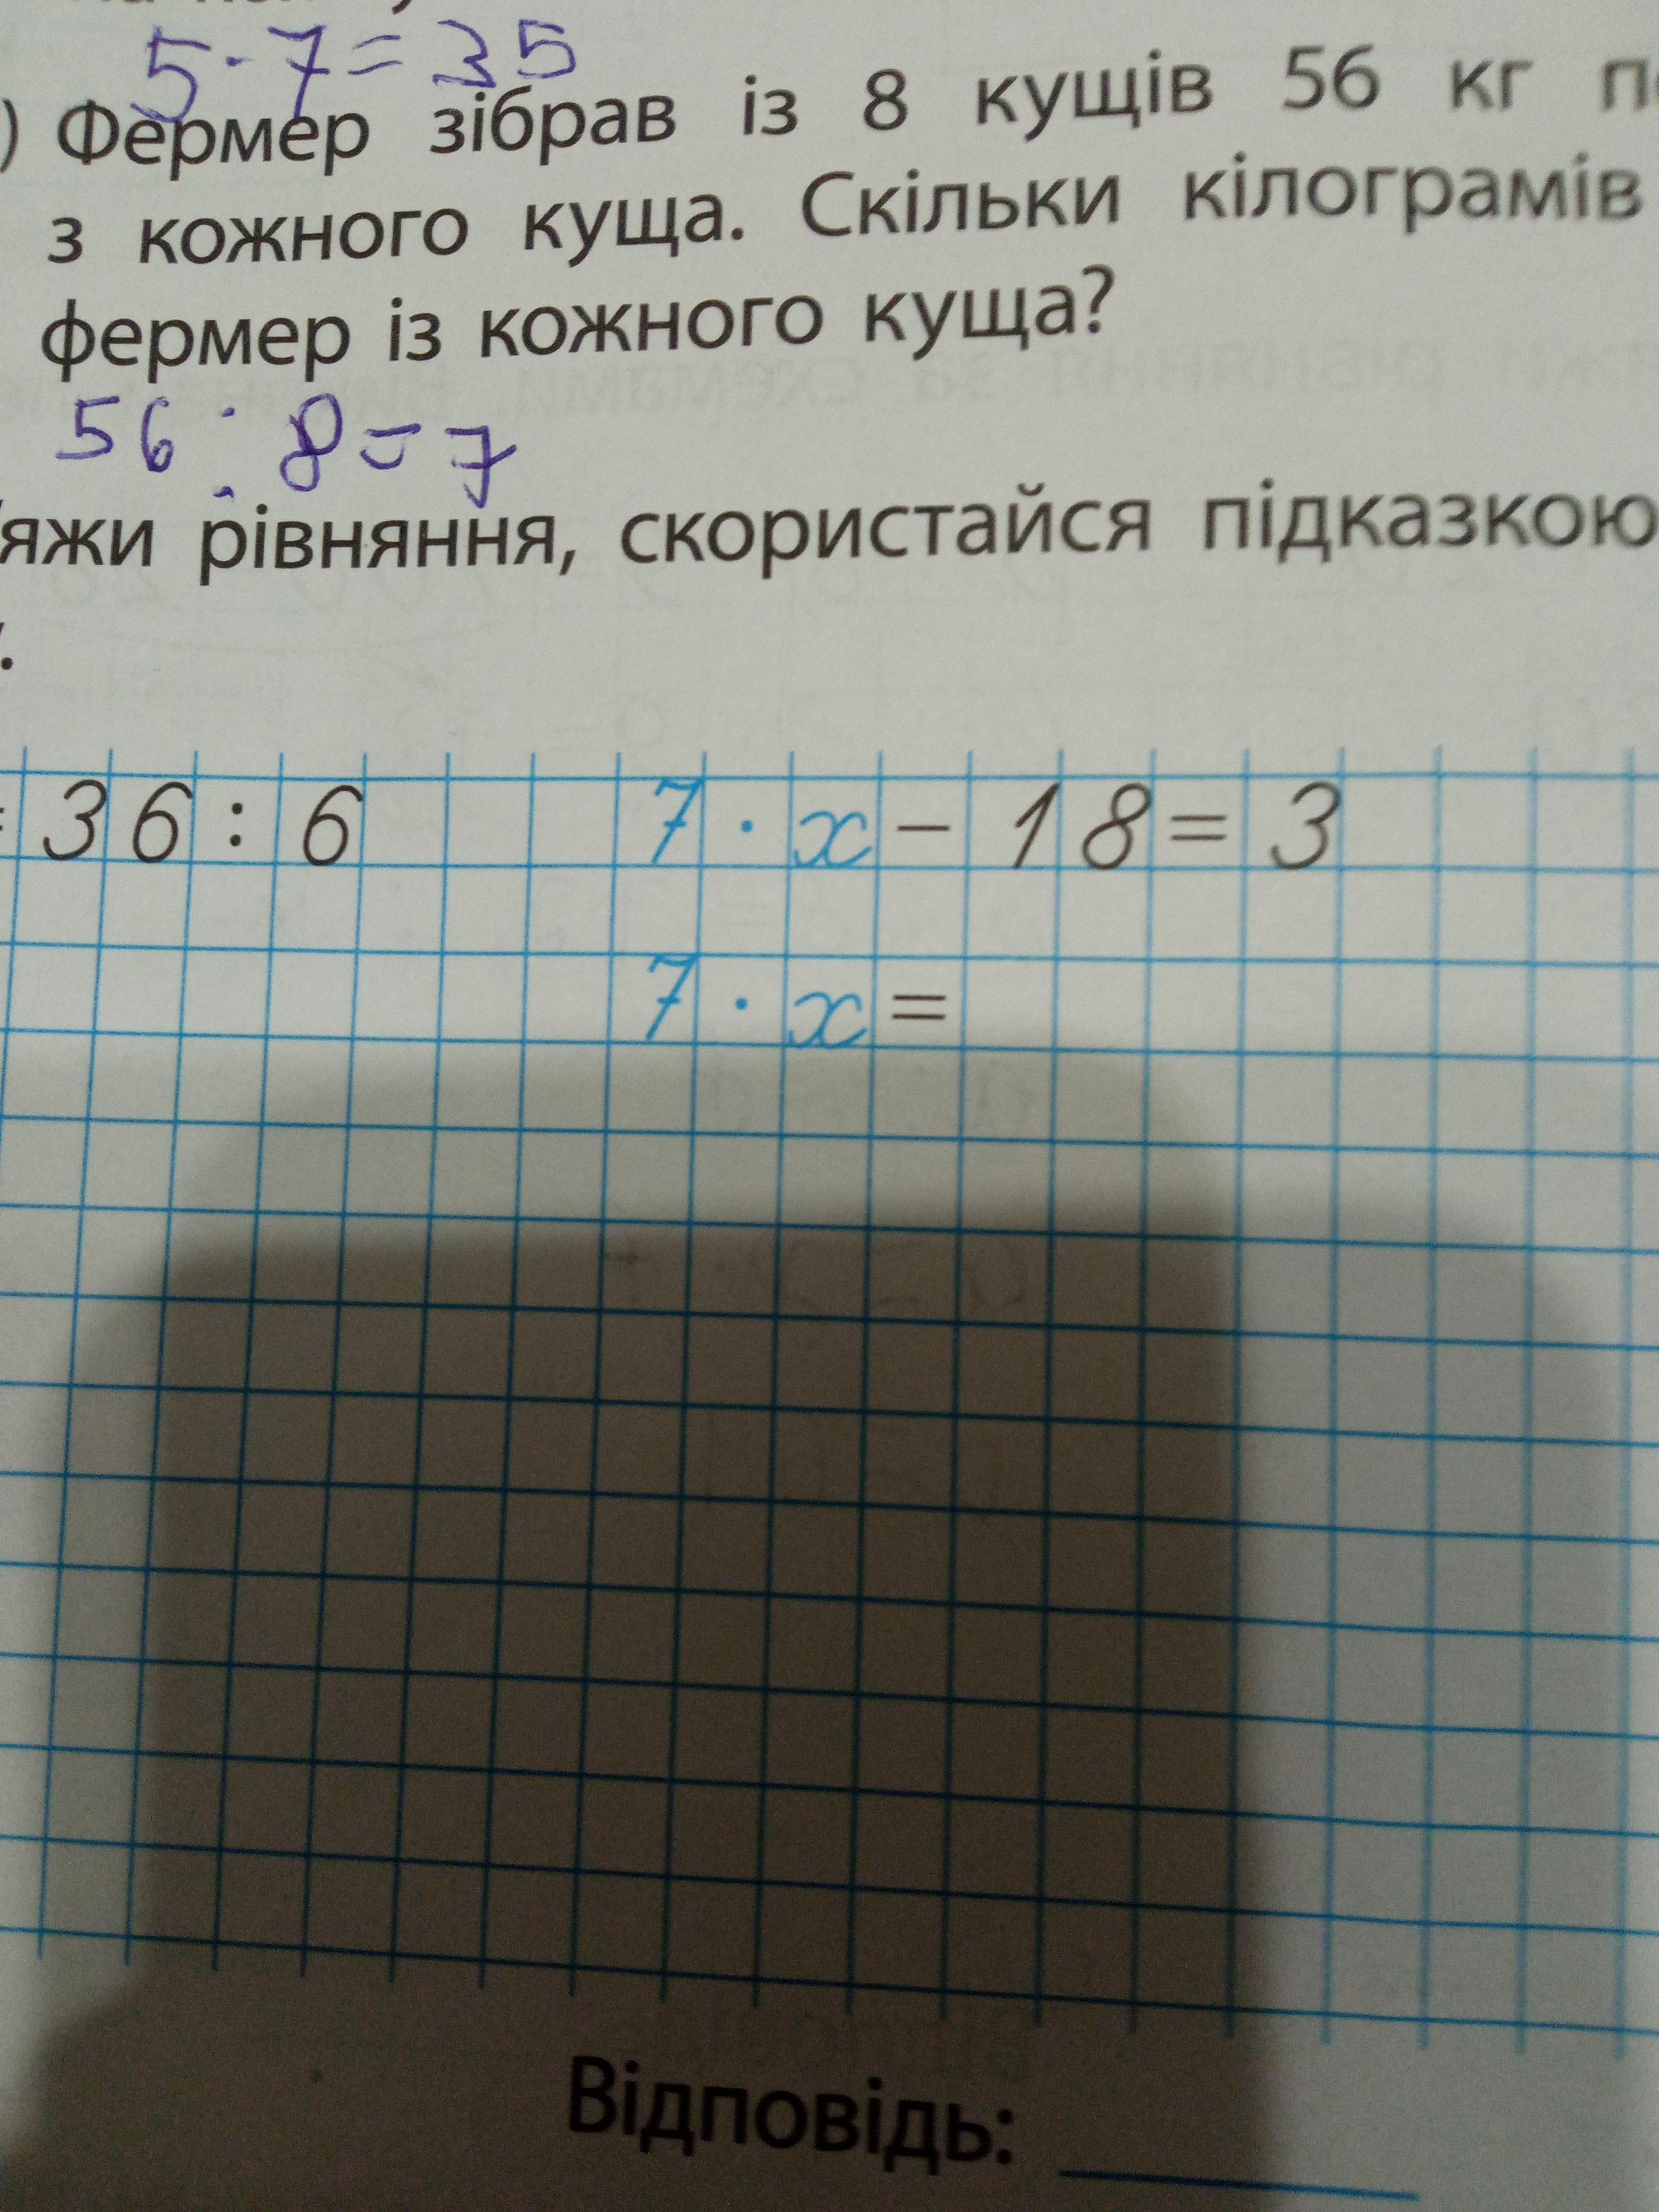 5·7=35
) Фермер зібрав із 8 кущів 56 кг
з кожного куща. Скільки кілограмів
фермер із кожного куща?
56:8=7
яжи рівняння, скористайся підказкою
36:6 7·x-18=3
7·x=
Відповідь: